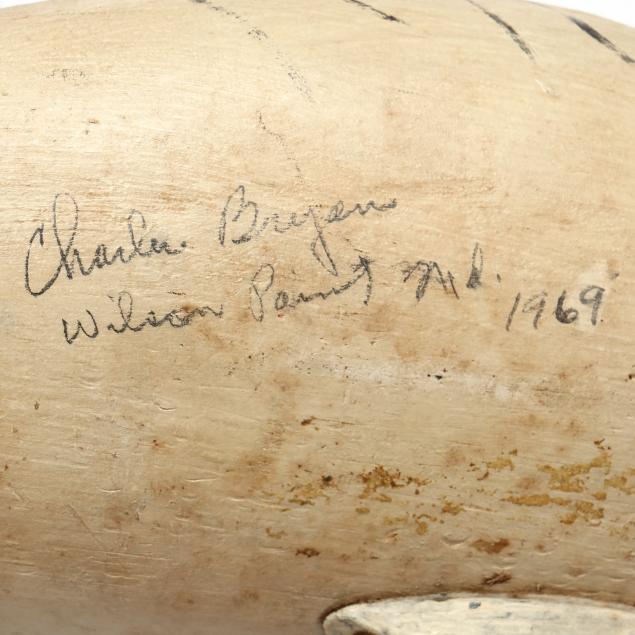 Charles Bryan
Wilson Point Md. 1969